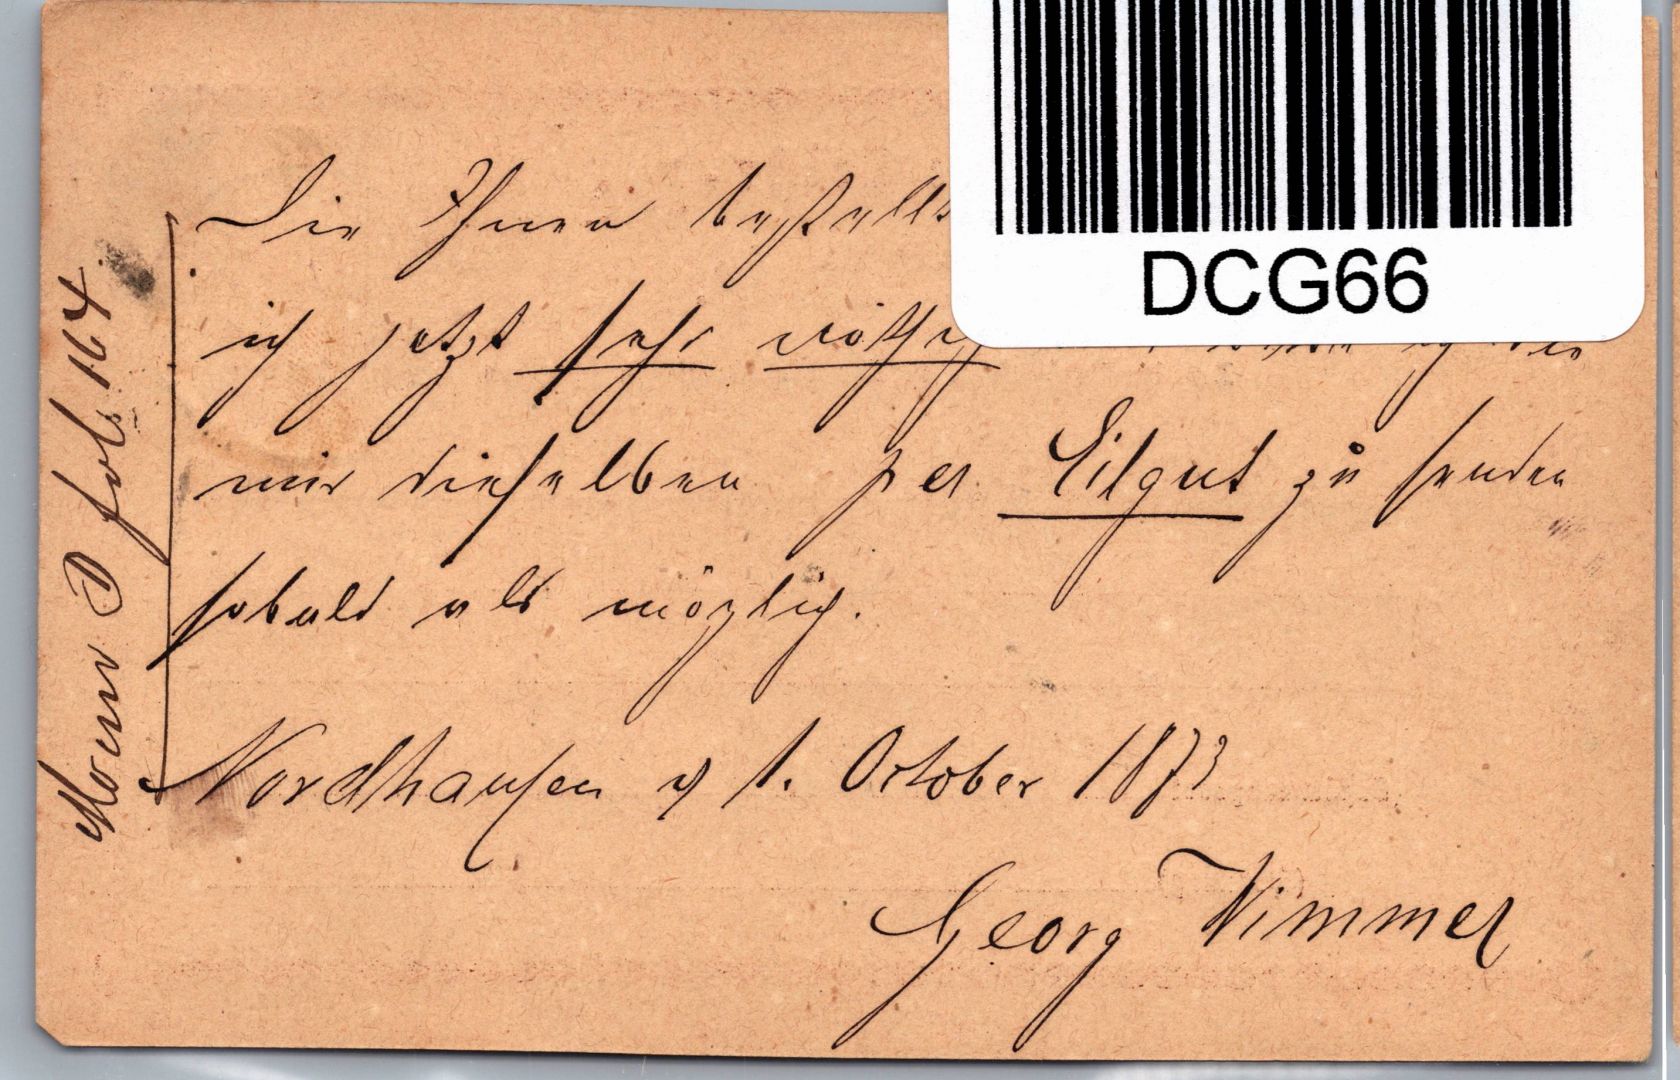 DCG66
Die Ihnen bestellt
ich jetzt sehr nöthig
mir dieselben per Eilgut zu senden
sobald als möglich.
Nordhausen d 1. October 1873
Georg Wimmer
fol. 164